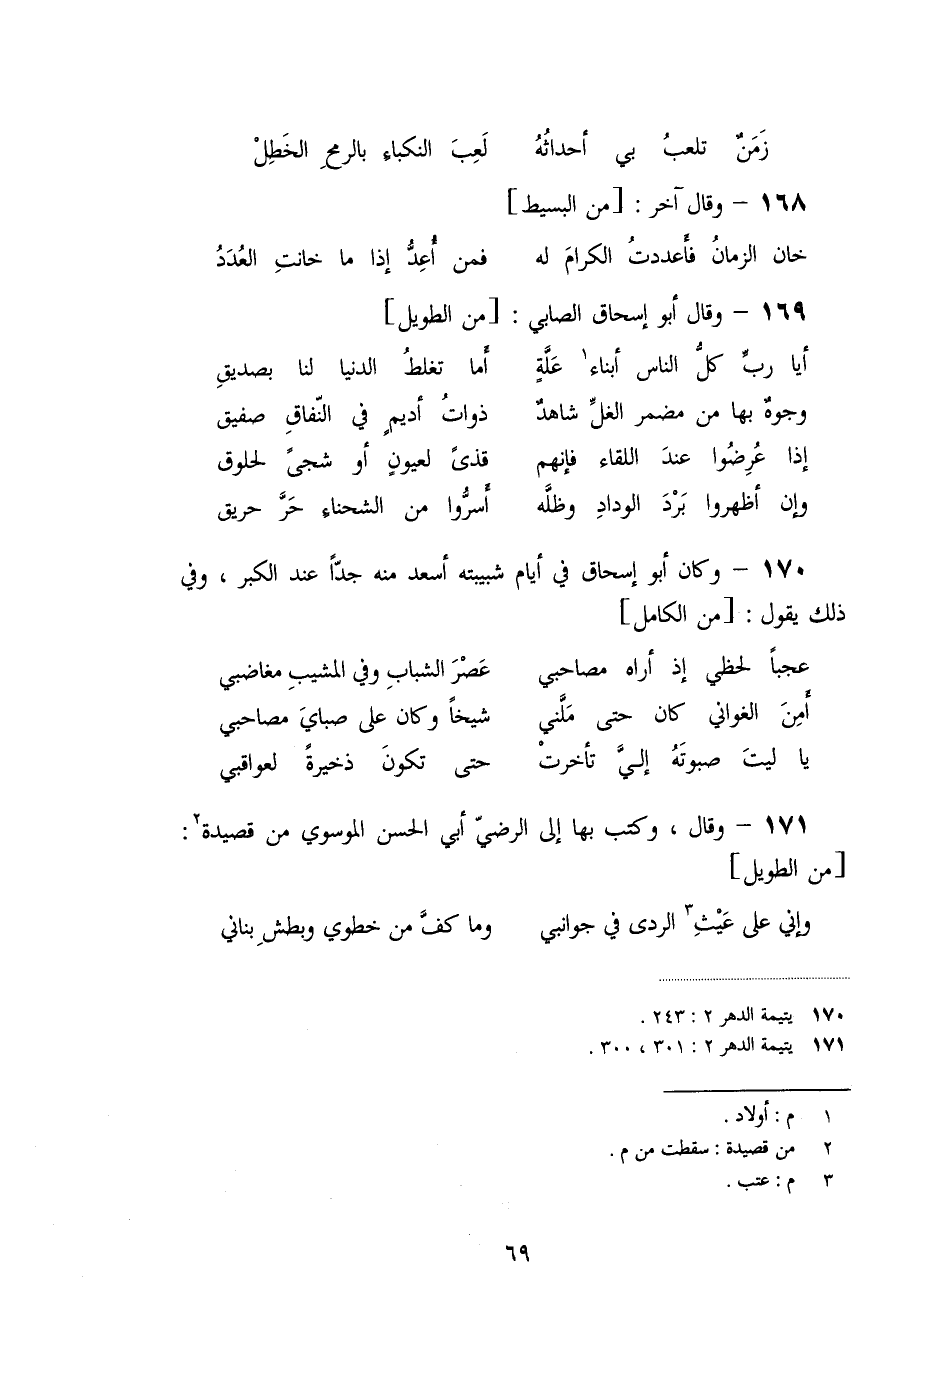 زَمَنٌ تلعبُ بي أحداثُهُ لَعِبَ النكباءِ بالرمحِ الخَطِلْ
١٦٨ – وقال آخر : [من البسيط]
خان الزمانُ فأَعددتُ الكرامَ له فمن أُعِدُّ إذا ما خانتِ العُدَدُ
١٦٩ – وقال أبو إسحاق الصابي : [من الطويل]
أيا ربِّ كلُّ الناس أبناء١ عَلَّةٍ أَما تغلطُ الدنيا لنا بصديقِ
وجوهٌ بها من مضمر الغلِّ شاهدٌ ذواتُ أديمٍ في النّفاقِ صفيق
إذا عُرِضُوا عندَ اللقاء فإنهم قذىً لعيونٍ أو شجىً لحلوق
وإن أظهروا بَرْدَ الودادِ وظلَّه أَسرُّوا من الشحناءِ حَرَّ حريق
١٧٠ – وكان أبو إسحاق في أيام شبيبته أسعد منه جدّاً عند الكبر ، وفي
ذلك يقول : [من الكامل]
عجباً لحظي إذ أراه مصاحبي عَصْرَ الشبابِ وفي المشيبِ مغاضبي
أَمِنَ الغواني كان حتى مَلَّني شيخاً وكان على صبايَ مصاحبي
يا ليتَ صبوتَهُ إليَّ تأخرتْ حتى تكونَ ذخيرةً لعواقبي
١٧١ – وقال ، وكتب بها إلى الرضيّ أبي الحسن الموسوي من قصيدة٢ :
[من الطويل]
وإني على عَيْثِ٣ الردى في جوانبي وما كفَّ من خطوي وبطشِ بناني
١٧٠ يتيمة الدهر ٢ : ٢٤٣ .
١٧١ يتيمة الدهر ٢ : ٣٠١ ، ٣٠٠ .
١ م : أولاد .
٢ من قصيدة : سقطت من م .
٣ م : عتب .
٦٩